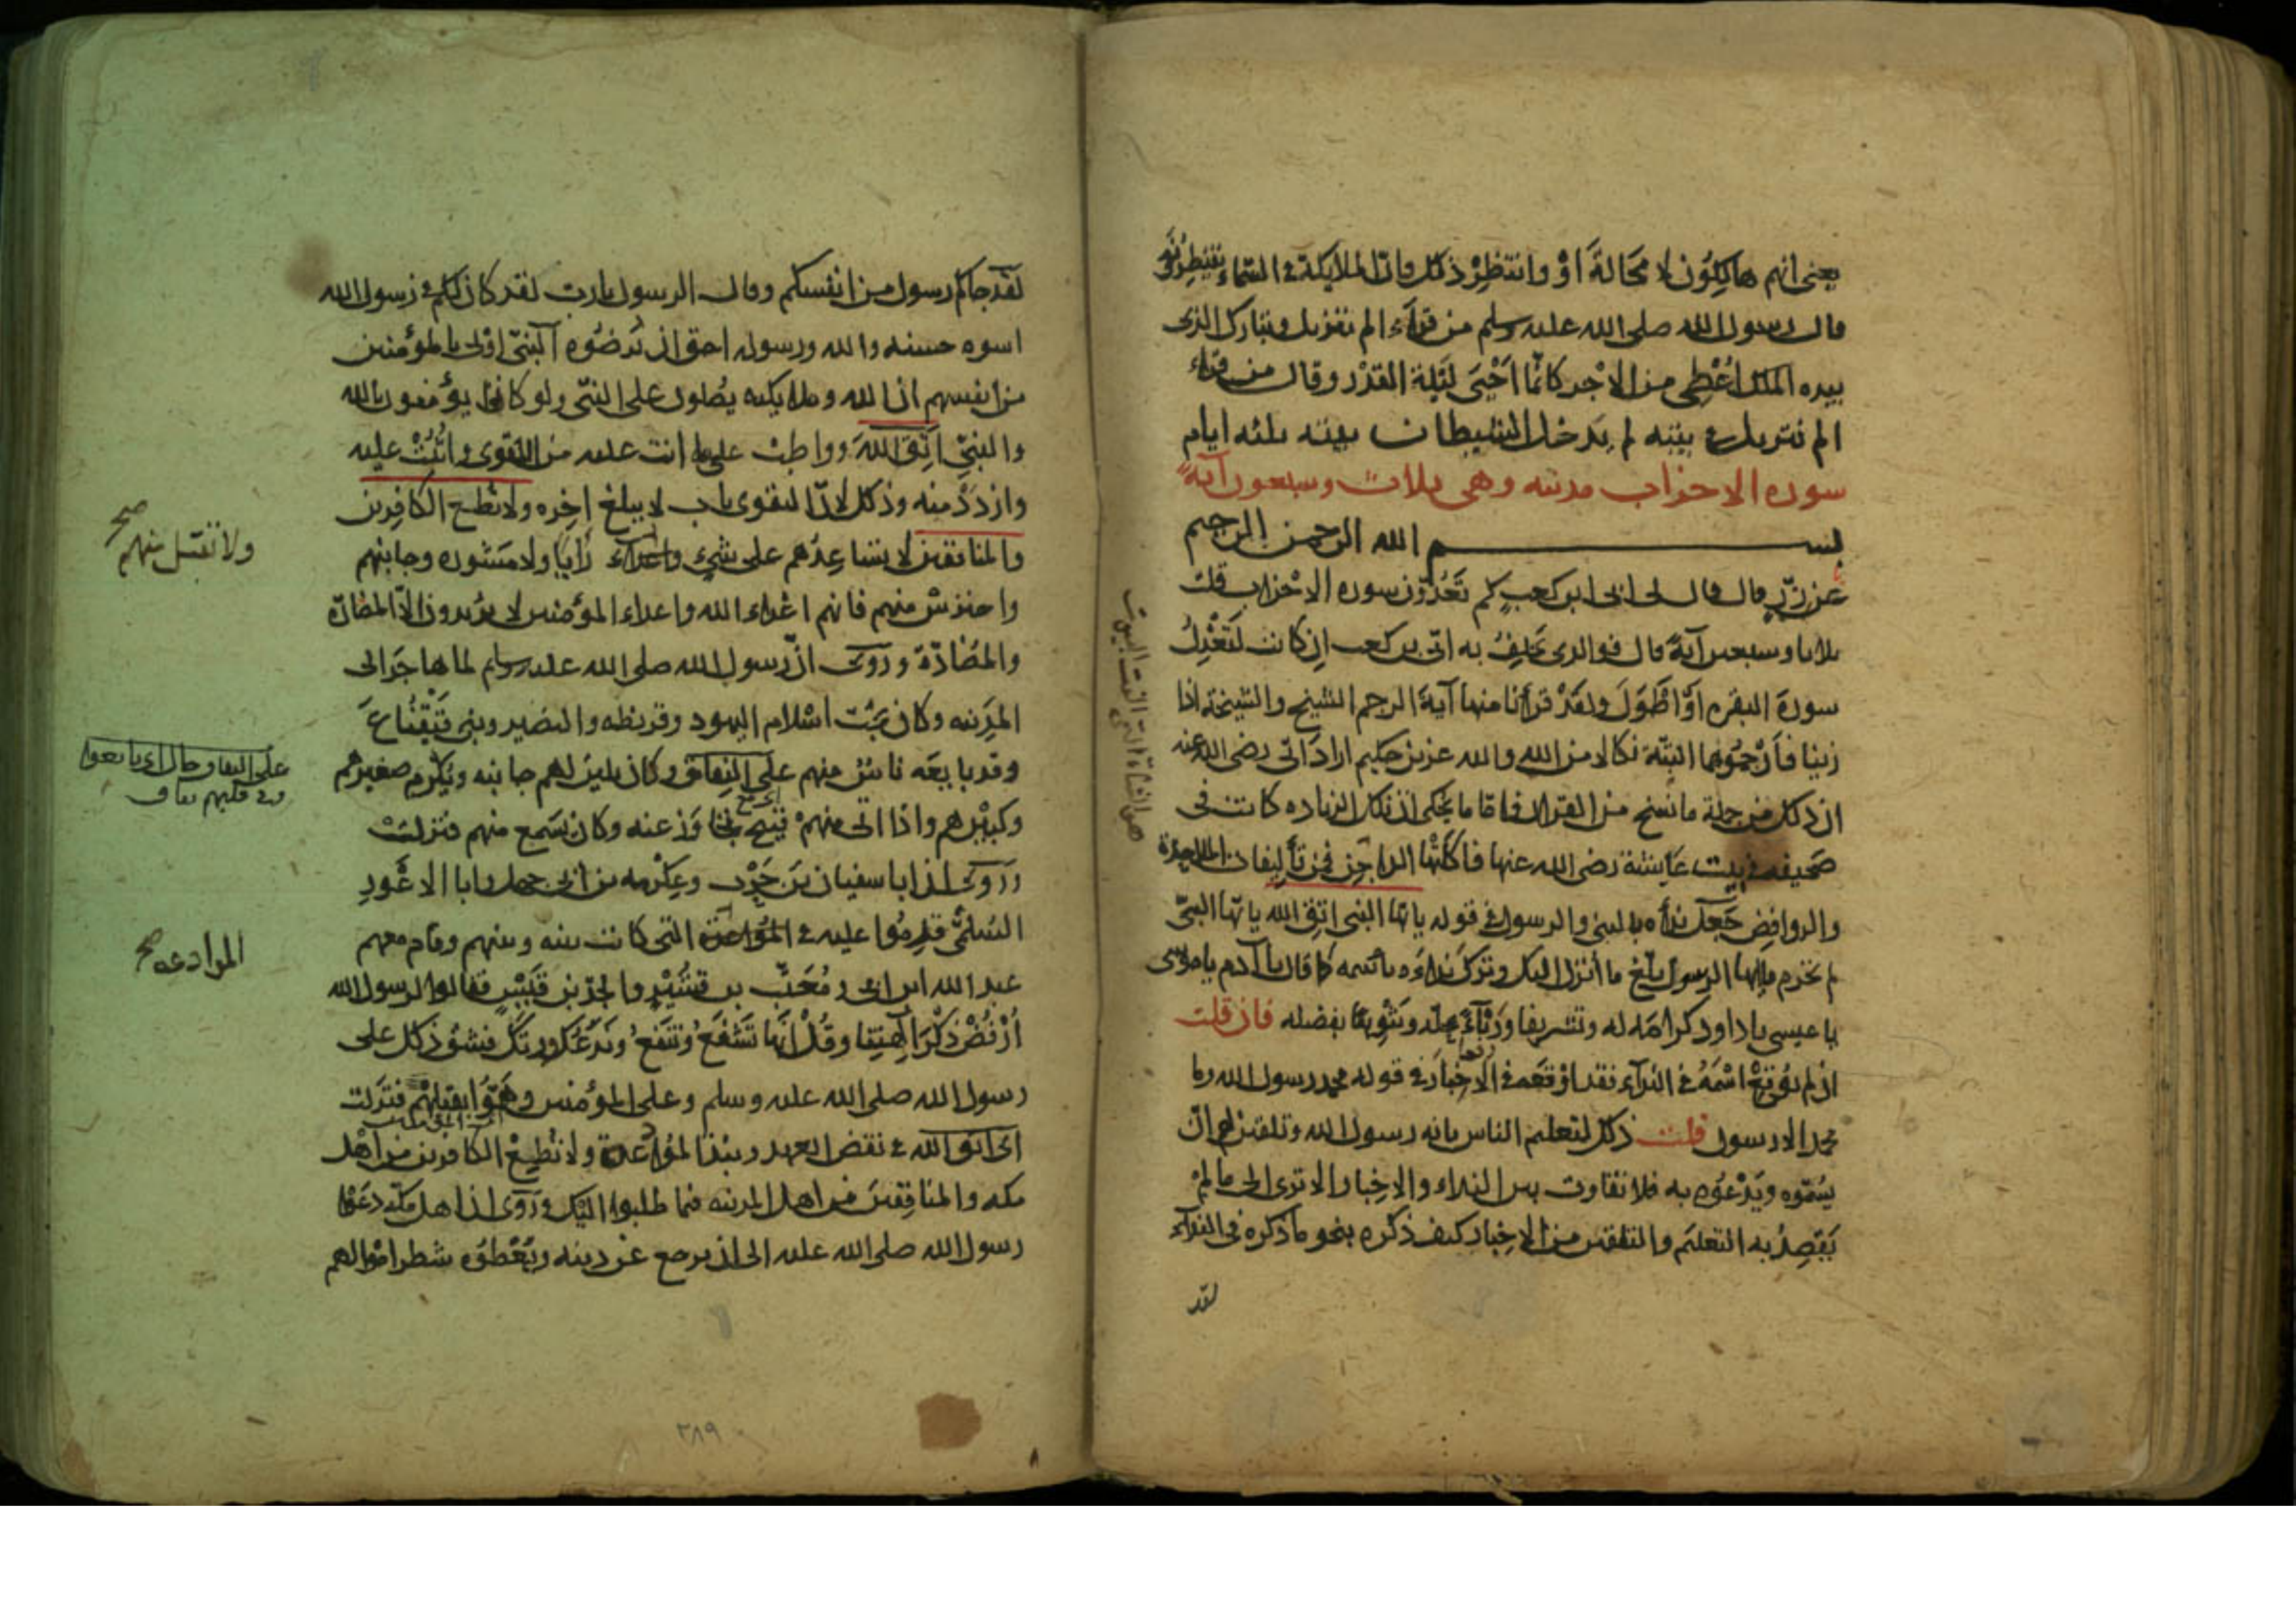 يعني انهم هالكون لا محالة اَوْ وانتظِرْ ذلك فانّ الملايكة في السّماء ينتظرونه
قال رسول الله صلى الله عليه وسلم من قرأ الم تنزيل وتبارك الذى
بيده الملك اُعْطِى من الاجر كانّما اَحْيَى لَيْلة القدْر وقال من قرأ
الم تنزيل في بيته لم يَدخل الشيطان بيته ثلثه ايام
سوره الاحزاب مدنيه وهى ثلاث وسبعون آية
بسم الله الرحمن الرحيم
عن زرّ قال قال لى ابى ابن كعبٍ كم تَعُدّون سوره الاحزاب قلت
ثلاثا وسبعين آيةً قال فوالذى يحلِفُ به ابىّ بن كعب اِن كانت لتَعْدِلُ
سورةَ البقره اوْ اَطْوَلَ ولقَدْ قرأنا منها آيةَ الرجم الشيخ والشيخة اذا
زنيا فارْجُمُوهما البتّة نكالا من الله والله عزيز حكيم اراد ابىّ رضى الله عنه
ان ذلك من جملة ما نسخ من القران فامّا ما يُحْكى ان تلك الزياده كانت فى
صَحيفه في بيت عايشة رضى الله عنها فاكلَتْها الداجِن فمن تأليفات الملاحدة
والروافِض جَعَلَ نداءه بالنبى والرسول في قوله يايّها النبى اتق الله يايّها النبىّ
لم تحرم يايها الرسول بلّغ ما اُنزل اليك وترك نداءَه باسمه كما قال يا آدم يا موسى
يا عيسى يا داود كرامَه له وتشريفا ورَبْأً بمحلّه وتنْوِيهًا بفضله فان قلت
ان لم يُوقِعْ اسْمَهُ في النداء فقد اوْقعَه في الاخْبَار في قوله محمد رسول الله وما
محمد الا رسول قلت ذلك لتعليم الناس بانه رسول الله وتلقين لهم ان
يسَمّوه ويَدْعُوه به فلا تفاوت بين النداء والاخبار الا ترى الى ما لمْ
يَقصِدْ به التعليم والتلقين من الاخبار كيف ذكره بنحو ما ذكره فى النداء
لقد
هو الشاة التى الفت البيوت
لقَد جاكم رسول من انفسكم وقال الرسول يا رب لقد كان لكم في رسول الله
اسوه حسنه والله ورسوله احق ان يُرضُوه اَلنبىّ اوْلى بالمؤمنين
من انفسهم ان الله وملايكته يصَلون على النبىّ ولو كانوا يؤمنون بالله
والنبىّ اتّقِ اللهَ وواظِبْ على ما انت عليه من التقوى واثْبُتْ عليه
وازددْ منه وذلك لانّ التقوى باب لا يبلغ اخِره ولا تُطع الكافِرين
والمنافقين لا تساعِدْهم على شىءٍ ولا تقبل منهم رَايًا ولا مَشوره وجانِبْهم
واحترسْ منهم فانهم اعْداء الله واعداء المؤمنين لا يُريدون الّا المضارّة
والمُضادّة ورُوِىَ انّ رسول الله صلى الله عليه وسلم لما هاجَر الى
المدِينه وكان يحِبّ اسْلام اليهود وقريظه والنضير وبنى قَيْنُقاعَ
وقد بايعَه ناسٌ منهم على النِفاق وكان يلين لهم جانبه ويُكْرِم صغيرَهم
وكبيْرهم واذا اتى منهمْ قبيح تجاوَز عنه وكان يَسمع منهم فنزلتْ
ورُوِىَ ان ابا سفيان بن حَرْب وعِكْرمه بن ابى جهل وابا الاعْورِ
السُلمىّ قدِمُوا عليه في المُوادعة التى كانت بينه وبينهم وقام معهم
عبد الله ابن ابى ومُعَتّب بن قُشَيْرٍ والجدّ بن قَيْسٍ فقالوا لرسول الله
اُرْفُضْ ذكْرَ الِهتِنا وقُلْ انّها تَشفَعُ وتنفع ونَدَعُك ورَبّكَ فشقّ ذلك على
رسول الله صلى الله عليه وسلم وعلى المؤمنين وهَمُّوا بقتلِهْم فنَزلت
اى اتق الله في نقض العهد ونبْذ المُوادعة ولا تُطِعْ الكافرين من اهْل
مكه والمنافِقينَ من اهل المدينه فيما طلبوا اليك ورُوِىَ ان اهل مكّه دعَوْا
رسول الله صلى الله عليه الى ان يرجع عن دينه ويُعْطوُه شطر امْوالهم
ولا تقبل منهم صح
على النفاق
وفي قلبهم نفاق
الموادعه صح
٣٨٩